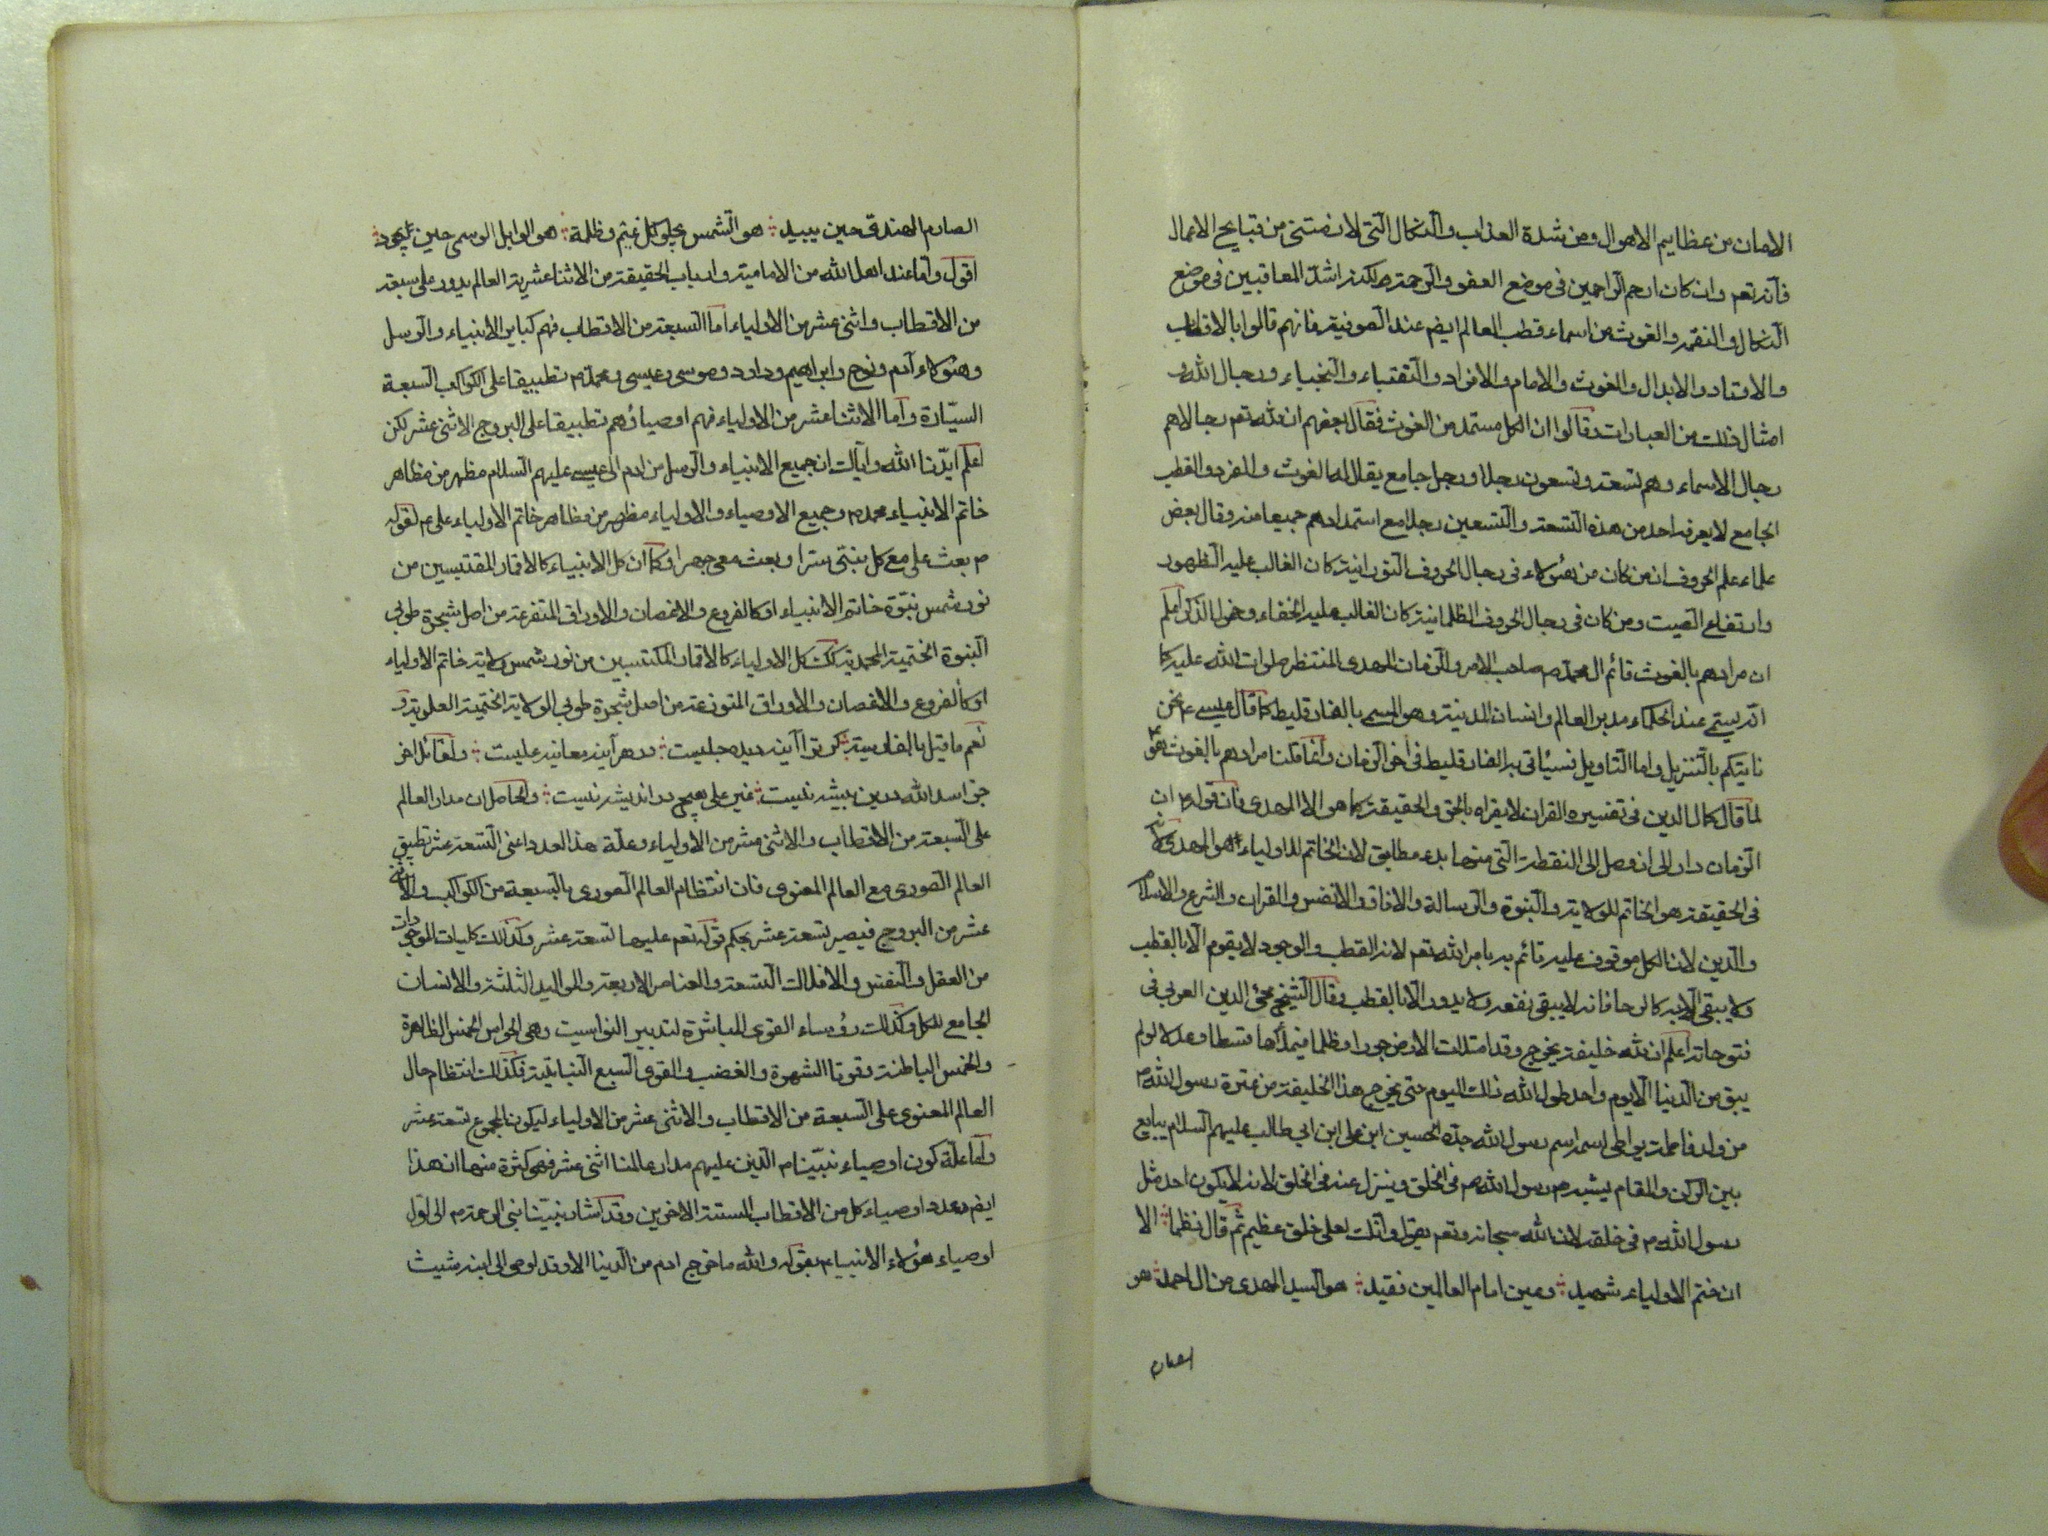 الامان من عظايم الاهوال ومن شدة العذاب والنكال التي لانستثنى من قبايح الاعمال
فانه تعم وان كان ارحم الراحمين في موضع العفو والرحمة ولكنه اشدّ المعاقبين في موضع
النكال والنقمة والغوث من اسماء قطب العالم ايضم عند الصوفية فانهم قالوا بالاقطاب
والاوتاد والابدال والغوث والامام والافراد والنقباء والنجباء ورجال الله و
امثال ذلك من العبارات وقالوا ان الكل مستمد من الغوث فقال بعضهم ان لله تعم رجالا هم
رجال الاسماء وهم تسعة وتسعون رجلا ورجل جامع يقال له الغوث والفرد والقطب
الجامع لا يعرفه احد من هذه التسعة والتسعين رجلا مع استمدادهم جميعا منه وقال بعض
علماء علم الحروف ان من كان من هؤلاء في رجال الحروف النورانية كان الغالب عليه الظهور
وارتفاع الصيت ومن كان في رجال الحروف الظلمانية كان الغالب عليه الخفاء وخمول الذكر اعلم
ان مرادهم بالغوث قائم ال محمد م صاحب الامر والزمان المهدي المنتظر صلوات الله عليه كما
انه يسمى عند الحكماء مدبر العالم وانسان المدينة وهو المسمى بالفارقليط كما قال عيسى ع نحن
ناتيكم بالتنزيل واما التاويل فسيأتى به الفارقليط في اخر الزمان وانما قلنا مرادهم بالغوث هو
لما قال كمال الدين في تفسيره القران لا يقراه بالحق والحقيقة كما هو الا المهدى فان قوله ان
الزمان دار الى ان وصل الى النقطة التي منها بدء مطابق لان الخاتم للاولياء هو المهدى لانه
في الحقيقة هو الخاتم للولاية والنبوة والرسالة والافاق والانفس والقران والشرع والاسلام
والدين لان الكل موقوف عليه قائم به بامر الله تعم لانه القطب والوجود لا يقوم الا بالقطب
ولا يبقى الا به كالرحا فانه لا يبقى نفعه ولا يدور الا بالقطب وقال الشيخ محى الدين العربي في
فتوحاته اعلم ان لله خليفة يخرج وقد امتلات الارض جورا وظلما فيملأها قسطا وعدلا لو لم
يبق من الدنيا الا يوم واحد طول الله ذلك اليوم حتى يخرج هذا الخليفة من عترة رسول الله م
من ولد فاطمة يواطى اسمه اسم رسول الله جدّه الحسين ابن على ابن ابي طالب عليهم السلام يبايع
بين الركن والمقام يشبه رسول الله م في الخلق وينزل عنه في الخلق لانه لا يكون احد مثل
رسول الله م في خلقه لان الله سبحانه وتعم يقول وانك لعلى خلق عظيم ثم قال نظما الا
ان ختم الاولياء شهيد وعين امام العالمين فقيد هو السيد المهدى من ال احمد هو
الصارم
الصارم الهندى حين يبيد هو الشمس يجلو كل غيم وظلمة هو الوابل الوسمى حين يجود
اقول واما عند اهل الله من الامامية وارباب الحقيقة من الاثناعشرية العالم يدور على سبعة
من الاقطاب واثنى عشر من الاولياء اما السبعة من الاقطاب فهم كبار الانبياء والرسل
وهؤلاء آدم ونوح وابراهيم وداود وموسى وعيسى ومحمد م تطبيقا على الكواكب السبعة
السيّارة واما الاثناعشر من الاولياء فهم اوصياؤهم تطبيقا على البروج الاثنى عشر لكن
اعلم ايّدنا الله واياك ان جميع الانبياء والرسل من ادم الى عيسى عليهم السلام مظهر من مظاهر
خاتم الانبياء محمد م وجميع الاوصياء والاولياء مظهر من مظاهر خاتم الاولياء على ع لقوله
م بعث على مع كل نبى سرا وبعث معى جهرا وكما ان كل الانبياء كالاقمار المقتبسين من
نور شمس نبوّة خاتم الانبياء او كالفروع والاغصان والاوراق المتفرعة من اصل شجرة طوبى
النبوة الختمية المحمدية كك كل الاولياء كالاقمار المكتسبين من نور شمس ولاية خاتم الاولياء
او كالفروع والاغصان والاوراق المتوزعة من اصل شجرة طوبى الولاية الختمية العلوية و
نعم ما قيل بالفارسية كر ترا آينه ديده جليست در هر آينه معانيه عليست ولقائل اخر
جز اسد الله در ين بيشه نيست غير على هيچ در انديشه نيست والحاصل ان مدار العالم
على السبعة من الاقطاب والاثنى عشر من الاولياء وعلة هذا العدد اعنى التسعة عشر تطبيق
العالم الصورى مع العالم المعنوى فان انتظام العالم الصورى بالسبعة من الكواكب والاثنى
عشر من البروج فيصير تسعة عشر بحكم قوله تعم عليها تسعة عشر وكذلك كليات الموجودات
من العقل والنفس والافلاك التسعة والعناصر الاربعة والمواليد الثلثة والانسان
الجامع للكل وكذلك رؤساء القوى المباشرة لتدبير النواسيت وهى الحواس الخمس الظاهرة
والخمس الباطنة وقوتا الشهوة والغضب والقوى السبع النباتية فكذلك انتظام حال
العالم المعنوى على السبعة من الاقطاب والاثنى عشر من الاولياء ليكون المجموع تسعة عشر
واما علّة كون اوصياء نبيّنا م الذين عليهم مدار عالمنا اثنى عشر فهى كثرة منها ان هذا
ايضم عدد اوصياء كل من الاقطاب الستة الاخرين وقد اشار نبينا نبى الرحمة م الى اوّل
اوصياء هؤلاء الانبياء م بقوله والله ما خرج ادم من الدنيا الا وقد اوصى الى ابنه شيث